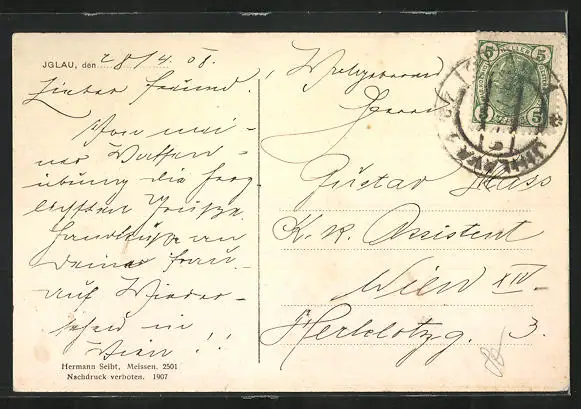 JGLAU, den 28/4. 08.
Lieber Freund!
Von mei-
ner Waffen-
übung die herz-
lichsten Grüsse.
Handküsse an
Deine Frau.
Auf Wieder-
sehen in
Wien!!
Hermann Seibt, Meissen. 2501
Nachdruck verboten. 1907
Wohlgeboren
Herrn
Gustav
K. k. Assistent
Wien XIV.
Herklotzg. 3.
5 HELLER 5
IGLAU
JIHLAVA